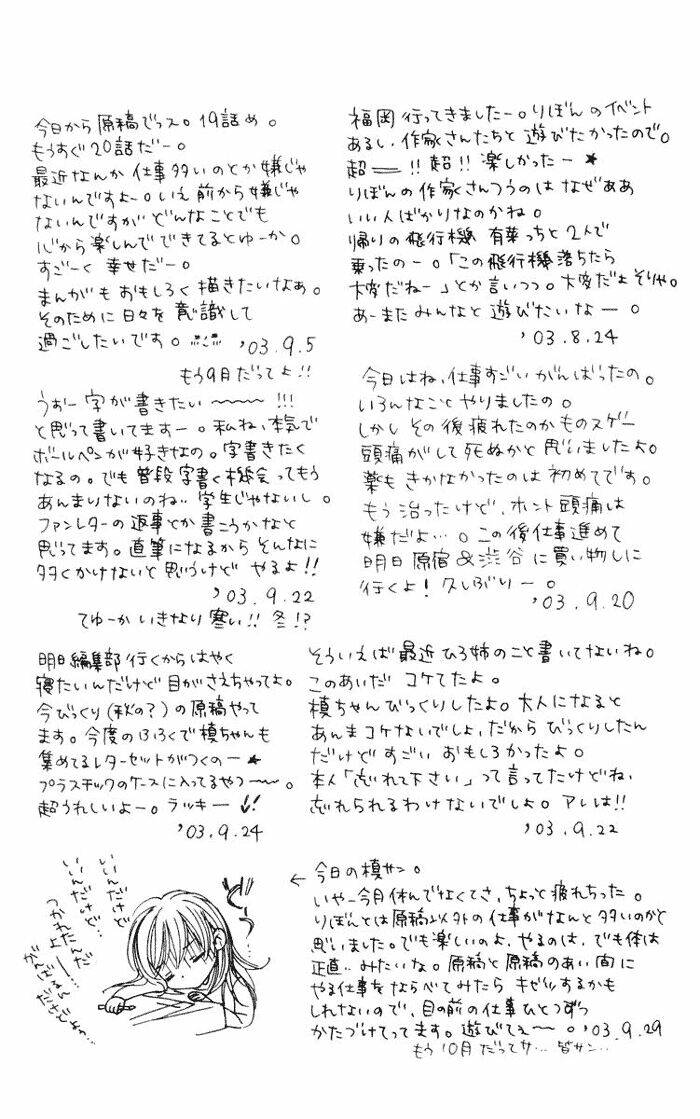 福岡行ってきましたー。りぼんのイベント
あるし、作家さんたちと遊びたかったので。
超——!!超!!楽しかったー★
りぼんの作家さんつうのはなぜああ
いい人ばかりなのかね。
帰りの飛行機 有葉っちと2人で
乗ったのー。「この飛行機落ちたら
大変だねー」とか言いつつ。大変だよそりゃ。
あーまたみんなと遊びたいなー。
'03.8.24
今日から原稿でっス。19話め。
もうすぐ20話だー。
最近なんか仕事多いのとか嫌じゃ
ないんですよー。いえ前から嫌じゃ
ないんですがどんなことでも
心から楽しんでできてるとゆーか。
すごーく幸せだー。
まんがもおもしろく描きたいなぁ。
そのために日々を意識して
過ごしたいです。
'03.9.5
もう9月だってよ!!
今日はね、仕事すごいがんばったの。
いろんなことやりましたの。
しかしその後疲れたのかものスゲー
頭痛がして死ぬかと思いましたよ。
薬もきかなかったのは初めてです。
もう治ったけど、ホント頭痛は
嫌だよ…。この後仕事進めて
明日原宿&渋谷に買い物しに
行くよ!久しぶりー。
'03.9.20
うおー字が書きたい〜〜〜!!!
と思って書いてますー。私ね、本気で
ボールペンが好きなの。字書きたく
なるの。でも普段字書く機会ってもう
あんまりないのね…学生じゃないし。
ファンレターの返事とか書こうかなと
思ってます。直筆になるからそんなに
多くかけないと思うけどやるよ!!
'03.9.22
てゆーかいきなり寒い!!冬!?
そういえば最近ひろ姉のこと書いてないね。
このあいだコケてたよ。
槙ちゃんびっくりしたよ。大人になると
あんまコケないでしょ、だからびっくりしたん
だけどすごいおもしろかったよ。
本人「忘れて下さい」って言ってたけどね、
忘れられるわけないでしょ。アレは!!
'03.9.22
明日編集部行くからはやく
寝たいんだけど目がさえちゃってよ。
今びっくり(秋の?)の原稿やって
ます。今度のふろくで槙ちゃんも
集めてるレターセットがつくのー★
プラスチックのケースに入ってるやつ〜〜。
超うれしいよー。ラッキー!!
'03.9.24
←今日の槙サン。
いやー今月休んでなくてさ、ちょっと疲れちった。
りぼんとは原稿以外の仕事がなんと多いのかと
思いました。でも楽しいのよ、やるのは、でも体は
正直…みたいな。原稿と原稿のあい間に
やる仕事をならべてみたらキゼツするかも
しれないので、目の前の仕事ひとつずつ
かたづけてってます。遊びてぇ〜。'03.9.29
もう10月だってサ…皆サン…
いいんだけど
いいんだけど…
つかれたんだ
よー…
がんばる